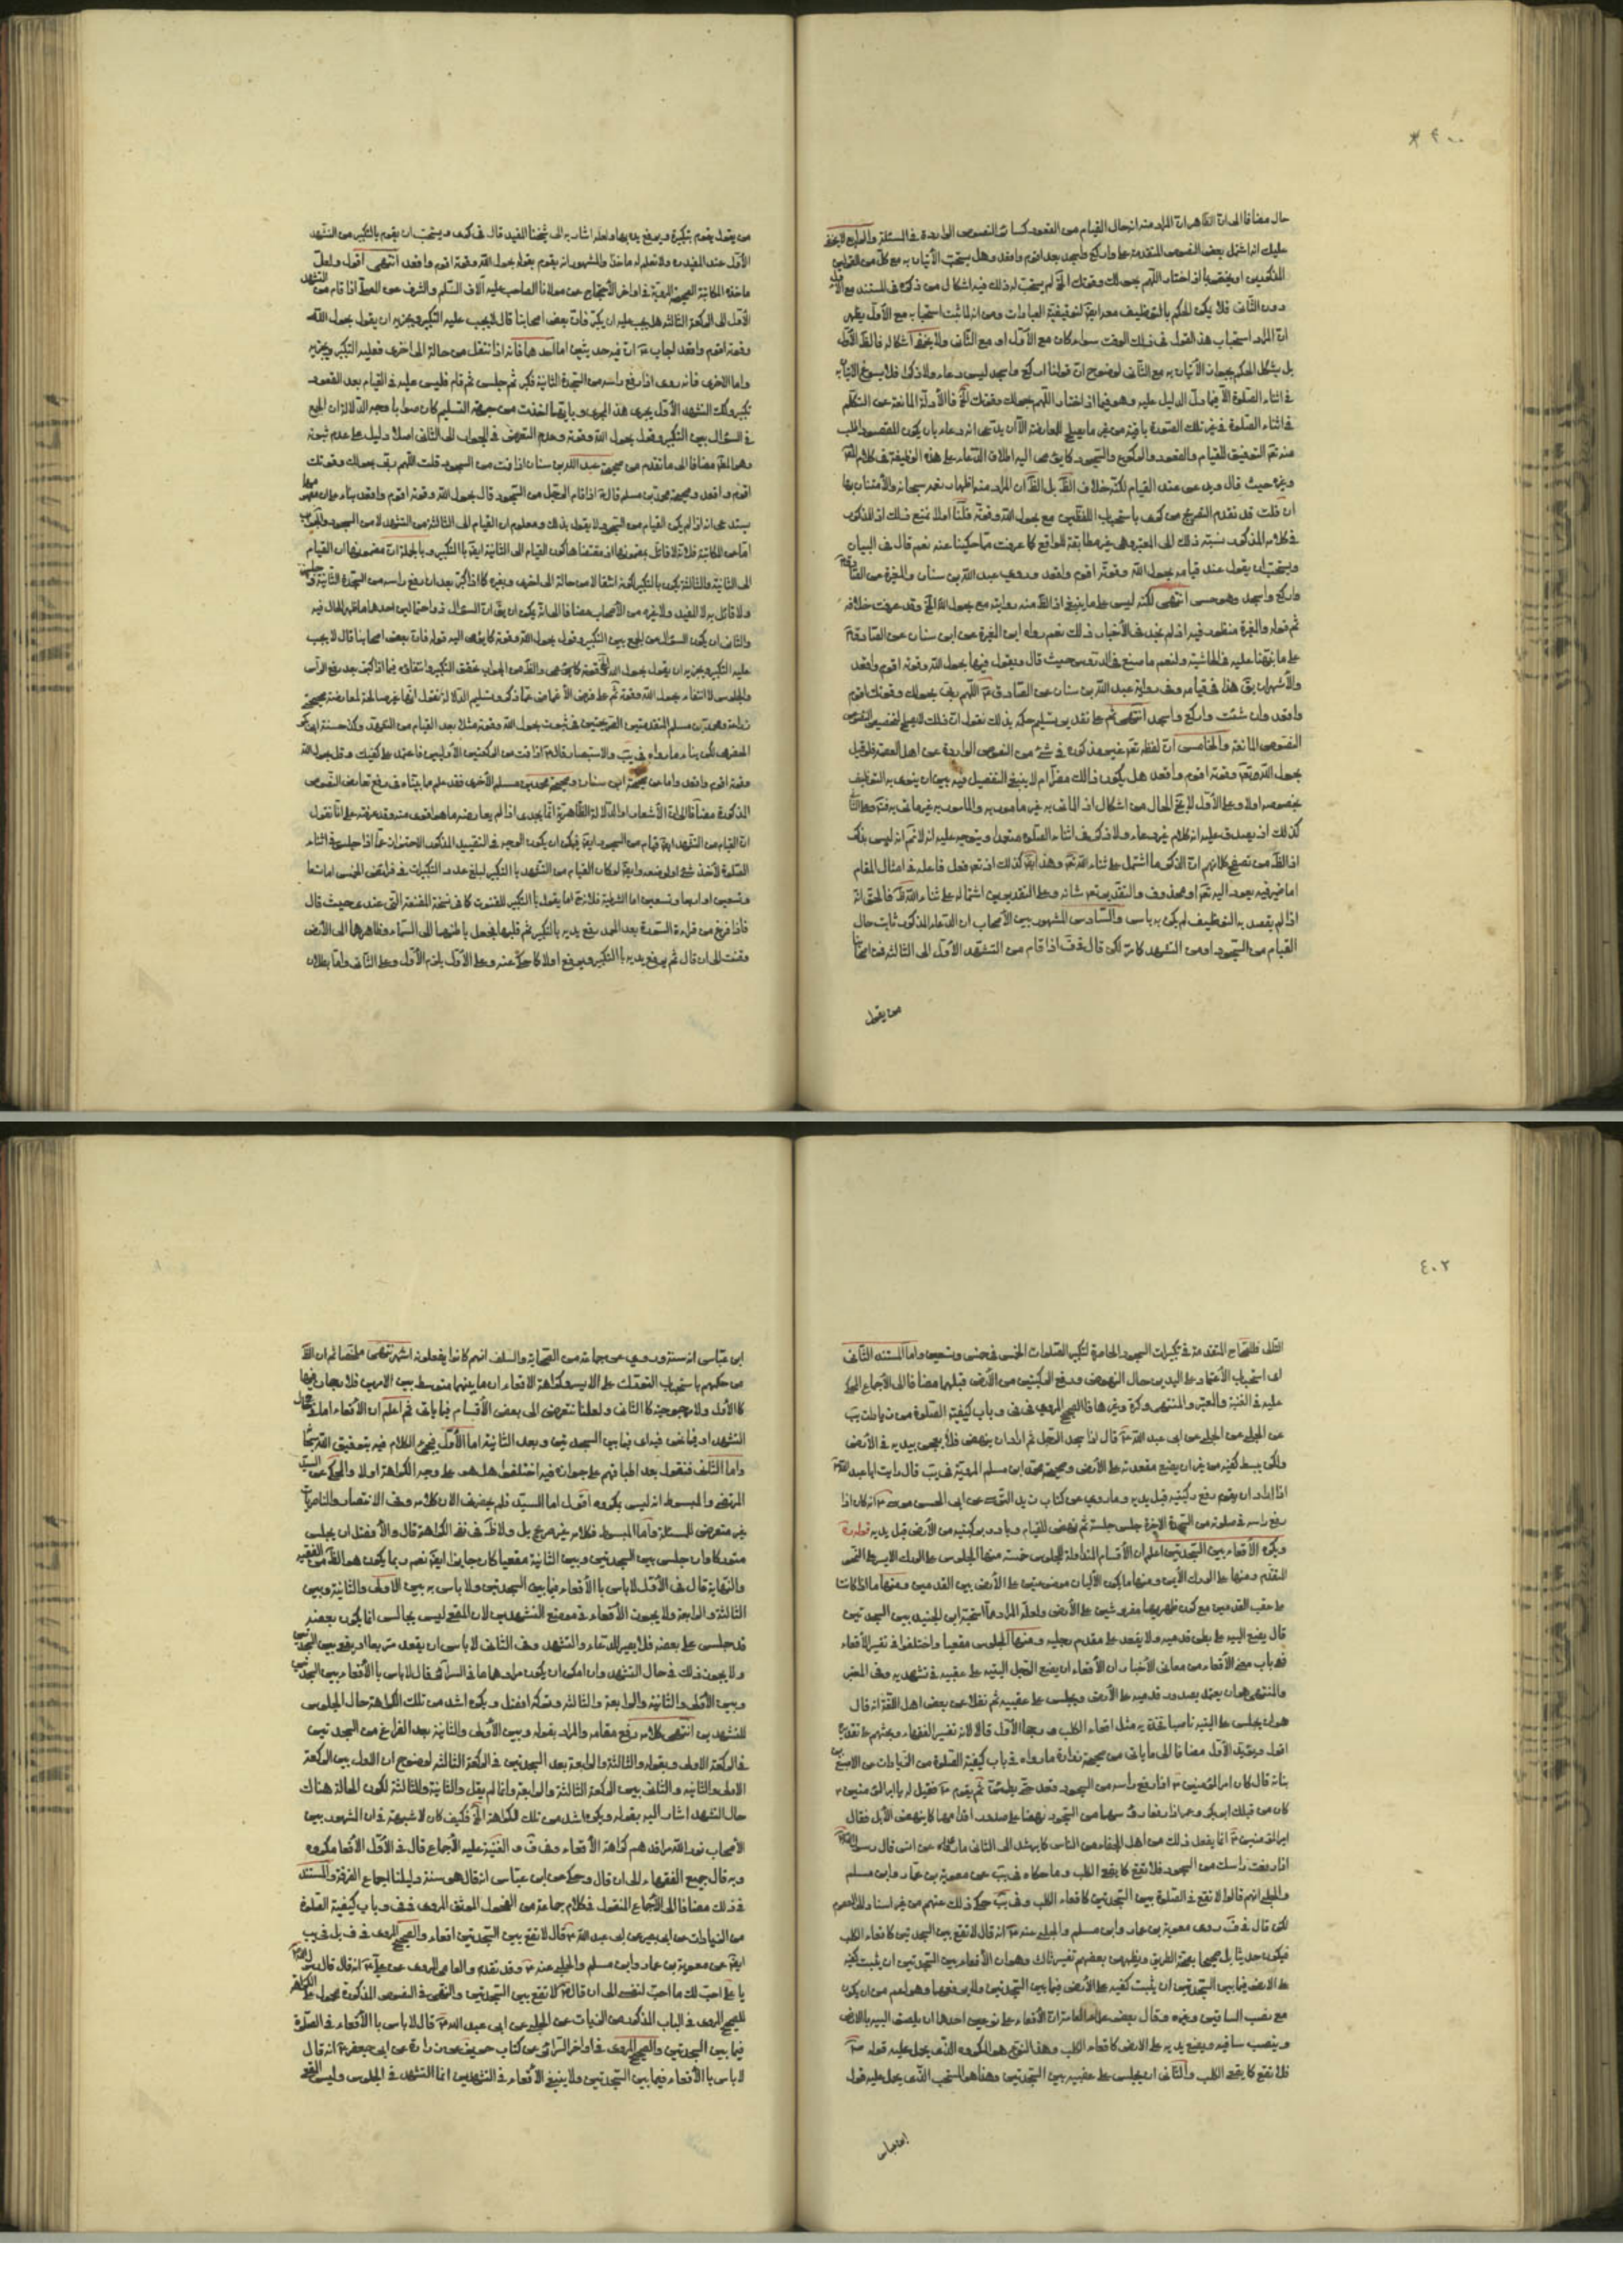 ٤٠٠
حال مضافا الى ان الظاهر ان المراد منه انه حال القيام من القعود كسائر النصوص الواردة في المسئلة والرابع لا يخفى
عليك انه اشتمل بعض النصوص المتقدمة على واركع واسجد بعد اقوم واقعد وهل يستحب الأتيان به مع كل من القولين
المذكورين او يختص بما اذا اختار اللهم بحولك وقوتك الخ لم يستحب له ذلك فيه اشكال من ذكره في المستند مع الأول
دون الثاني فلا يمكن الحكم بالتوظيف مع
ان المراد استحباب هذا القول في ذلك الوقت سواء كان مع الأول او مع الثاني ولا يخفى اشكاله
بل يشكل الحكم بجواز الأتيان به مع الثاني لوضوح ان قولنا اركع واسجد ليس دعاء ولا ذكرا فلا يسوغ الاتيان به
في اثناء الصلوة الا فيما دل الدليل عليه وهو فيما اذا اختار اللهم بحولك وقوتك الخ فالأدلة المانعة عن التكلم
في اثناء الصلوة في غير تلك الصورة باقية من غير ما يصلح للمعارضة الا ان يدعى انه دعاء بان يكون المقصود طلب
منه تعالى التوفيق للقيام والقعود والركوع والسجود كما يومى اليه اطلاق الدعاء على هذه الوظيفة في كلام
وغيره حيث قال ويدعى عند القيام لكنه خلاف الظ بل الظ ان المراد منه اظهار نعمه سبحانه والأمتنان بها
ان قلت قد تقدم التصريح من كرى باستحباب اللفظين مع بحول الله وقوته قلنا اولا نمنع ذلك اذ المذكور
في كلامه المذكور نسبة ذلك الى المعتبر وهي غير مطابقة للواقع كما عرفت مما حكينا عنه نعم قال في البيان
ويستحب ان يقول عند قيامه بحول الله وقوته اقوم واقعد وروى عبد الله بن سنان والمغيرة عن الصادق
واركع واسجد وهو حسن انتهى لكنه ليس على ما ينبغي اذ الظ منه روايته مع بحول الله الخ وقد عرفت خلافه
ثم قوله والمغيرة منظور فيه اذ لم نجد في الأخبار ذلك نعم رواه ابن المغيرة عن ابن سنان عن الصادق
على ما نبهنا عليه في الحاشية ولنعم ما صنع في الدروس حيث قال ويقول فيها بحول الله وقوته اقوم واقعد
والأشهر ان يق هذا في قيامه وفي رواية عبد الله بن سنان عن الصادق اللهم ربى بحولك وقوتك اقوم
واقعد وان شئت واركع واسجد انتهى ثم على تقدير تسليم حكمه بذلك نقول ان ذلك لا يصلح لتخصيص
النصوص المانعة والخامس ان لفظ تعالى غير مذكورة في شئ من النصوص الواردة عن اهل العصمة فلو قيل
بحول الله تعالى وقوته اقوم واقعد هل يكون ذلك مضرا ام لا ينبغي التفصيل فيه بين ان ينوى به التوظيف
بخصوصه اولا وعلى الأول لا يخ الحال من اشكال اذ الماتى به غير مامور به والمامور به غير ماتى به
كذلك اذ يصدق عليه انه كلام غير دعاء ولا ذكر في اثناء الصلوة
اذ الظ من تصفح كلامهم ان الذكر ما اشتمل على ثناء الله تعالى وهذا ايض كذلك اذ تعالى فعل فاعله في امثال المقام
اما ضمير فيه يعود اليه تعالى او محذوف والتقدير تعالى شانه وعلى التقديرين اشتماله على ثناء الله ظ فالحق انه
اذا لم يقصد به التوظيف لم يكن به باس والسادس المشهور بين الأصحاب ان الدعاء المذكور ثابت حال
القيام من السجود او من التشهد كما مر لكن قال في اذا قام من التشهد الأول الى الثالثة فمن اصحابنا
من يقول
من يقول يقوم بتكبيرة ويرفع يديه بها ولعله اشار به الى شيخنا المفيد قال في كرى ويستحب ان يقوم بالتكبير من التشهد
الأول عند المفيد ره ولا نعلم له ماخذا والمشهور انه يقوم بقوله بحول الله وقوته اقوم واقعد انتهى اقول ولعل
ماخذه المكاتبة الصحيحة المروية في اواخر الأحتجاج عن مولانا الصاحب عليه آلاف السلم والشرف عن المصلى اذا قام من التشهد
الأول الى الركعة الثالثة هل يجب عليه ان يكبر فان بعض اصحابنا قال لا يجب عليه التكبير ويجزيه ان يقول بحول الله
وقوته اقوم واقعد اجاب ان فيه حديثين اما احدهما فانه اذا انتقل من حالة الى اخرى فعليه التكبير ويجزيه
واما الاخرى فانه روى اذا رفع راسه من السجدة الثانية فكبر ثم جلس ثم قام فليس عليه في القيام بعد القعود
تكبير وكذلك التشهد الأول يجرى هذا المجرى وبايهما اخذت من جهة التسليم كان صوابا وجه الدلالة ان الجمع
في السؤال بين التكبير وقول بحول الله وقوته وعدم التعرض في الجواب الى الثانى اصلا دليل على عدم ثبوته
وهو الظ مضافا الى ما تقدم من صحيحة عبد الله بن سنان اذا قمت من السجود قلت اللهم ربى بحولك وقوتك
اقوم واقعد وصحيحة محمد بن مسلم قال اذا قام الرجل من السجود قال بحول الله وقوته اقوم واقعد بناء على ان
يستدعى انه اذا لم يكن القيام من السجود لا يقول بذلك ومعلوم ان القيام الى الثالثة من التشهد لا من السجود والجواب
اما عن المكاتبة فلانه لا قائل بمضمونها اذ مقتضاها كون القيام الى الثانية ايض بالتكبير وبالجملة ان مضمونها ان القيام
الى الثانية والثالثة يكون بالتكبير لكونه انتقالا من حالة الى اخرى وبغيره كما اذا كبر بعد ان رفع راسه من السجدة الثانية
ولا قائل به لا المفيد ولا غيره من الأصحاب مضافا الى انه يمكن ان يق ان السؤال ذو احتمالين احدهما ما ظهر الحال فيه
والثانى ان يكون السؤال من الجمع بين التكبير وقول بحول الله وقوته كما يومى اليه قوله فان بعض اصحابنا قال لا يجب
عليه التكبير ويجزيه ان يقول بحول الله وقوته كما والظ من الجواب تحقق التكبير وانتفائه فيما اذا كبر بعد رفع الرأس
والجلوس لا انتفاء بحول الله وقوته ثم على فرض الأغماض عما ذكر وتسليم الدلالة نقول انها غير صالحة لمعارضة صحيحتى
زرارة ومحمد بن مسلم المتقدمتين الصريحتين في ثبوت بحول الله وقوته مثلا بعد القيام من التشهد وكذا حسنة ابى بكر
الحضرمى لكن بناء ما رواه في يب والاستبصار قال اذا قمت من الركعتين الأوليين فاعتمد على كفيك وقل بحول الله
وقوته اقوم واقعد واما عن صحيحة ابن سنان وصحيحة محمد بن مسلم الأخرى فقد علم ما بيناه في رفع تعارض النصوص
المذكورة مضافا الى ان الأشعار او الدلالة الظاهرية انما يجدى اذا لم يعارضه ما هو اقوى منه وقد عرفته على انا نقول
ان القيام من التشهد ايض قيام من السجود ايض فيمكن ان يكون الوجه في التقييد المذكور الاحتراز عما اذا جلس في اثناء
الصلوة لأخذ شئ او لوضعه وايض لو كان القيام من التشهد بالتكبير لبلغ عدد التكبيرات في فرائض الخمس اما تسعا
وتسعين او اربعا وتسعين اما الشرطية فلانه ح اما يقول بالتكبير للقنوت كما في نسخة المقنعة التى عندى حيث قال
فاذا فرغ من قراءة السورة بعد الحمد رفع يديه بالتكبير ثم قلبهما فجعل باطنهما الى السماء وظاهرهما الى الأرض
وقنت الى ان قال ثم يرفع يديه بالتكبير ويركع اولا كما حكى عنه وعلى الأول يلزم الأول وعلى الثانى واما بطلان
٤٠٢
التالى فللصحاح المتقدمة في تكبيرات السجود والحاصرة لتكبير الصلوات الخمس في خمس وتسعين واما المستند الثانى
اى استحباب الأعتماد على اليدين حال النهوض ورفع الركبتين من الأرض قبلهما مضافا الى الأجماع المحكى
عليه في الغنية والمعتبر والمنتهى وكرى وغيرها فالصحيح المروى في في وباب كيفية الصلوة من زيادات يب
عن الحلبى عن ابى عبد الله قال اذا سجد الرجل ثم اراد ان ينهض فلا يعجن بيديه في الأرض
ولكن يبسط كفيه من غير ان يضع مقعدته على الأرض وصحيحة محمد ابن مسلم المروية في يب قال رايت ابا عبد الله
اذا اراد ان يقوم رفع ركبتيه قبل يديه وما روى عن كتاب زيد النرسى عن ابى الحسن موسى انه كان اذا
رفع راسه في صلوته من السجدة الاخيرة جلس جلسة ثم نهض للقيام وبادر بركبتيه من الأرض قبل يديه قوله ره
ويكره الأقعاء بين السجدتين اعلم ان الأقسام المتداولة للجلوس خمسة منها الجلوس على الورك الايسر على النحو
المتقدم ومنها على الورك الأيمن ومنها ما يكون الأليان موضوعتين على الأرض بين القدمين ومنها ما اذا كانت
على عقب القدمين مع كون ظهريهما مفروشين على الأرض ولعله المراد مما استحبه ابن الجنيد بين السجدتين
قال يضع اليتيه على بطن قدميه ولا يقعد على مقدم رجليه ومنها الجلوس مقعيا واختلفوا في تفسير الأقعاء
ففى باب معنى الأقعاء من معانى الأخبار ان الأقعاء ان يضع الرجل اليتيه على عقبيه في تشهديه وفى المعتبر
والمنتهى هو ان يعتمد بصدور قدميه على الأرض ويجلس على عقبيه ثم نقلا عن بعض اهل اللغة انه قال
هو ان يجلس على اليتيه ناصبا فخذيه مثل اقعاء الكلب ورجحا الأول قالا لانه تفسير الفقهاء وبحثهم على تقديره
اقول ويؤيد الأول مضافا الى ما ياتى من صحيحة زرارة ما رواه في باب كيفية الصلوة من الزيادات عن الاصبغ بن
نباتة قال كان امير المؤمنين اذا رفع راسه من السجود قعد حتى يطمئن ثم يقوم فقيل له يا امير المؤمنين
كان من قبلك ابو بكر وعمر اذا رفعا رؤسهما من السجود نهضا على صدور اقدامهما كما ينهض الأبل فقال
امير المؤمنين انما يفعل ذلك من أهل الجفاء من الناس كما يرشد الى الثانى ما رواه عن انس قال رسول الله
اذا رفعت راسك من السجود فلا تقع كما يقعى الكلب وما حكاه في يب عن معوية بن عمار وابن مسلم
والحلبى انهم قالوا لا تقع في الصلوة بين السجدتين كاقعاء الكلب وفى يب حكى ذلك عنهم من غير اسناد الى المعصوم
لكن قال في روى معوية بن عمار وابن مسلم والحلبى عنه انه قال لا تقع بين السجدتين كاقعاء الكلب
فيكون حديثا بل صحيحا بصحة الطريق ويظهر من بعضهم تفسير ثالث وهو ان الأقعاء بين السجدتين ان يثبت كفيه
على الارض فيما بين السجدتين ان يثبت كفيه على الأرض فيما بين السجدتين ولا يرفعهما وهو اعم من ان يكون
مع نصب الساقين وغيره وقال بعض علماء العامة ان الأقعاء على نوعين احدهما ان يلصق اليتيه بالارض
وينصب ساقيه ويضع يديه على الارض كاقعاء الكلب وهذا النوع هو المكروه الذى يحمل عليه قوله
فلا تقع كما يقعى الكلب والثانى ان يجلس على عقبيه بين السجدتين وهذا هو المستحب الذى يحمل عليه قول
ابن عباس
ابن عباس انه سنة وروى عن جماعة من الصحابة والسلف انهم كانوا يفعلونه انتهى ملخصا ثم ان الظ
من حكمهم باستحباب التورك على الايسر وكراهة الاقعاء ان ما بينهما متوسط بين الامرين فلا رجحان فيها
كالأول ولا مرجوحية كالثانى ولعلنا نتعرض الى بعض الأقسام فيما ياتى ثم اعلم ان الأقعاء اما في حال
التشهد او في غيره اى فيما بين السجدتين وبعد الثانية اما الأول فيجئ الكلام فيه بتوفيق الله سبحانه
واما الثانى فنقول بعد اطباقهم على جوازه فيه اختلفوا هل هو على وجه الكراهة اولا والمحكى عن السيد
المرتضى والمبسوط انه ليس بمكروه اقول اما السيد فلم يحضرنى الان كلامه وفى الانتصار والناصريات
غير متعرض للمسئلة واما المبسوط فكلامه غير صريح بل ولا ظ في نفى الكراهة قال والأفضل ان يجلس
متوركا وان جلس بين السجدتين وبين الثانية مقعيا كان جايزا ايض نعم ربما يكون هو الظ من الفقيه
والنهاية قال في الأول لا باس بالأقعاء فيما بين السجدتين ولا باس به بين الاولى والثانية وبين
الثالثة والرابعة ولا يجوز الأقعاء في موضع التشهدين لان المقعى ليس بجالس انما يكون بعضه
قد جلس على بعضه فلا يصير للدعاء والتشهد وفى الثانى لا باس ان يقعد متربعا او يقعى بين السجدتين
ولا يجوز ذلك في حال التشهد وان امكن ان يكون مرادهما ما في السرائر فقال لا باس بالأقعاء بين السجدتين
وبين الأولى والثانية والرابعة والثالثة وتركه افضل ويكره اشد من تلك الكراهة حال الجلوس
للتشهدين انتهى كلامه رفع مقامه والمراد بقوله وبين الأولى والثانية بعد الفراغ من السجدتين
في الركعة الاولى وبقوله والثالثة والرابعة بعد السجدتين في الركعة الثالثة لوضوح ان الاول بين الركعة
الاولى والثانية والثانى بين الركعة الثالثة والرابعة وانما لم يقل والثانية والثالثة لكون الحالة هناك
حال التشهد اشار اليه بقوله ويكره اشد من تلك الكراهة الخ فكيف كان لا شبهة في ان المشهور بين
الأصحاب نور الله مراقدهم كراهة الأقعاء وفى ف والغنية عليه الأجماع قال في الأول الأقعاء مكروه
وبه قال جميع الفقهاء الى ان قال وحكى عن ابن عباس انه قال هو سنة دليلنا اجماع الفرقة والمستند
في ذلك مضافا الى الأجماع المنقول في كلام جماعة من الفحول الموثق المروى في في وباب كيفية الصلوة
من الزيادات عن ابى بصير عن ابى عبد الله قال لا تقع بين السجدتين اقعاء والصحيح المروى في يب
ايض عن معوية بن عمار وابن مسلم والحلبى عنه وقد تقدم والعامى المروى عن على انه قال قال رسول الله
يا على احب لك ما احب لنفسى الى ان قال لا تقع بين السجدتين والنهى في النصوص المذكورة محمول على الكراهة
للصحيح المروى في الباب المذكور من الزيادات عن الحلبى عن ابى عبد الله قال لا باس بالأقعاء في الصلوة
فيما بين السجدتين والصحيح المروى في اواخر السرائر عن كتاب حريز عن زرارة عن ابى جعفر انه قال
لا باس بالأقعاء فيما بين السجدتين ولا ينبغى الأقعاء في التشهدين انما التشهد في الجلوس وليس المقعى